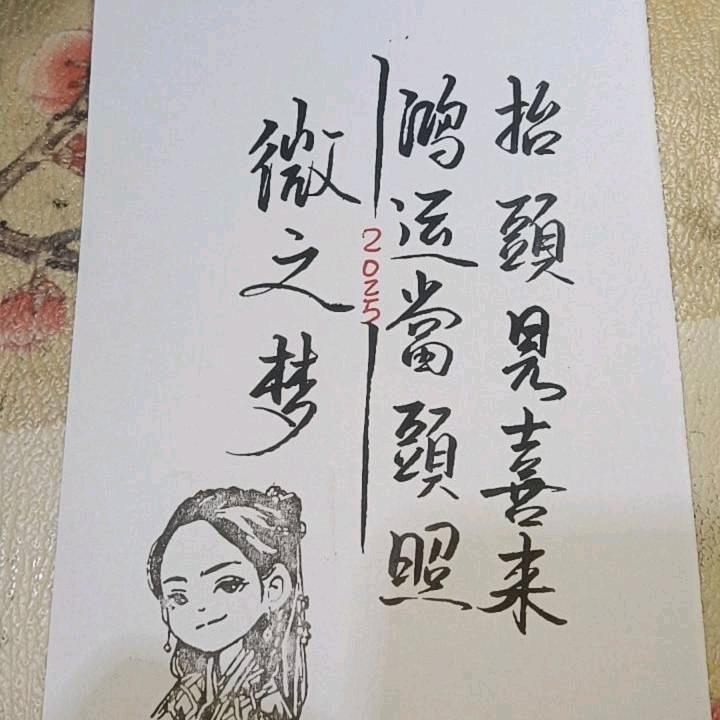 抬頭見喜来
鸿运當頭照
2025
微之梦